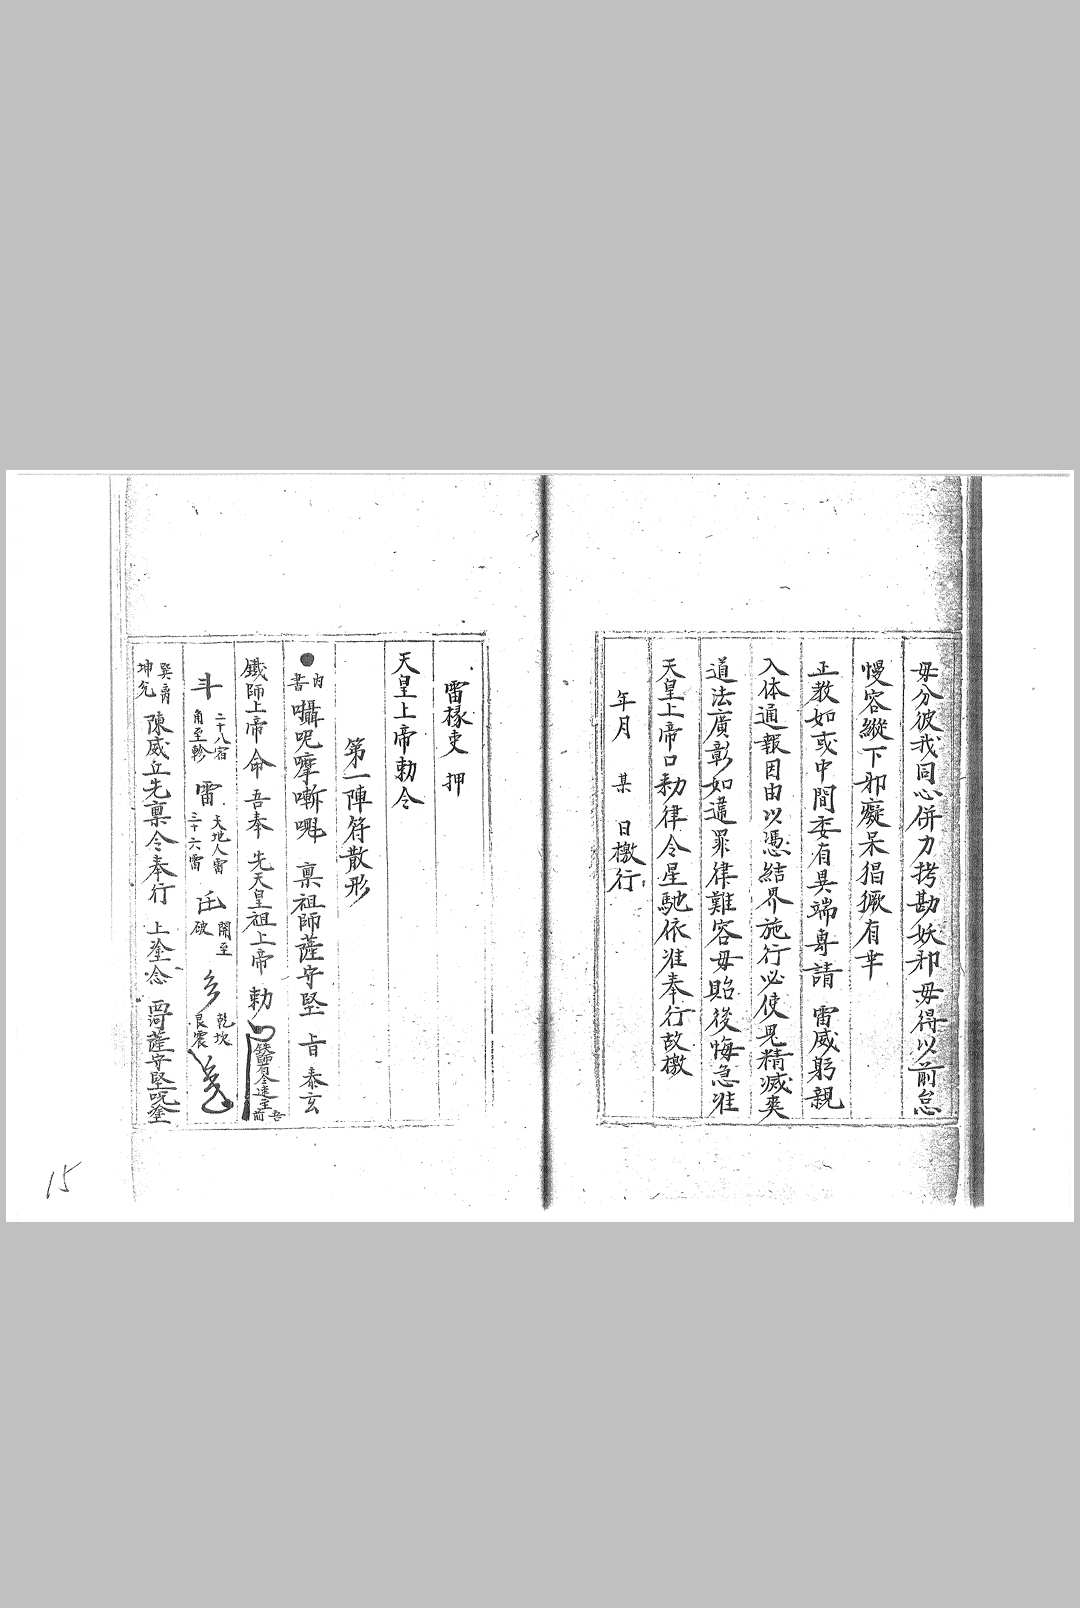 毋分彼我同心併力拷勘妖邪毋得以前怠
慢容縱下邪癡呆猖獗有芈
正教如或中間委有異端專請 雷威躬親
入体通報因由以憑結界施行必使鬼精滅爽
道法廣彰如違罪律難容毋貽後悔急准
天皇上帝口勅律令星馳依准奉行故檄
年月 某 日檄行
雷椽吏 押
天皇上帝勅令
第一陣符散形
內書 囁呪摩嘶 稟祖師薩守堅 旨泰玄
鐵師上帝 命 吾奉 先天皇祖上帝 勅
斗 二十八宿角至軫 雷 天地人雷三十六雷 開至破 乾坎艮震
巽离坤兌 陳威丘先稟令奉行 上塗念 西河薩守堅呪塗
15